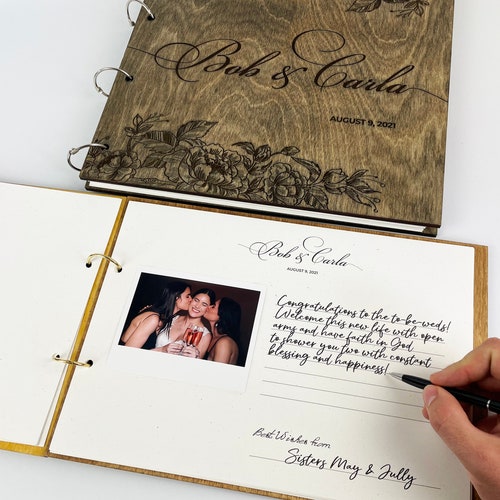 Bob & Carla
AUGUST 9, 2021
Bob & Carla
AUGUST 9, 2021
Congratulations to the to-be-weds!
Welcome this new life with open
arms and have faith in God
to shower you two with constant
blessing and happiness!
Best Wishes from
Sisters May & Jully